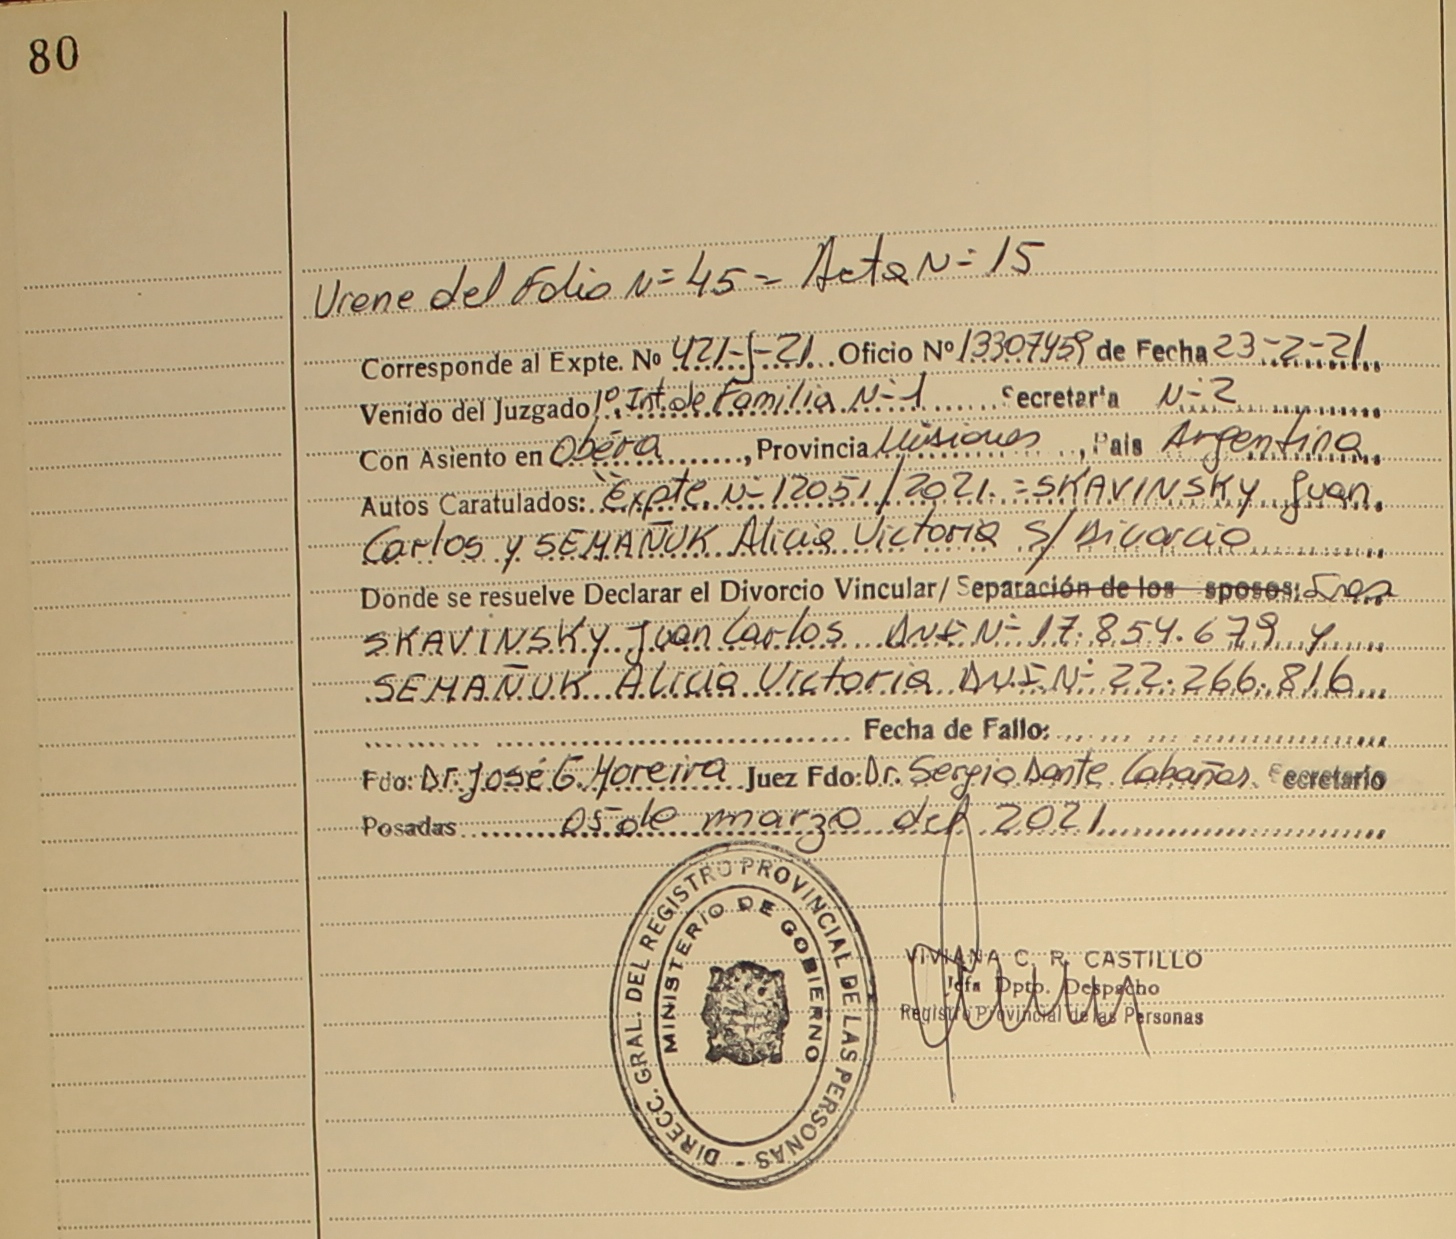 80
Viene del Folio Nº 45 = Acta Nº 15
Corresponde al Expte. Nº 421-J-21 Oficio Nº 13307459 de Fecha 23-2-21
Venido del Juzgado 1º Int. de Familia Nº 1 Secretaría Nº 2
Con Asiento en Oberá, Provincia Misiones, País Argentina
Autos Caratulados: "Expte. Nº 12051/2021. = SKAVINSKY Juan
Carlos y SEMAÑUK Alicia Victoria S/ Divorcio
Donde se resuelve Declarar el Divorcio Vincular/ Separación de los sposos:
SKAVINSKY Juan Carlos DNI Nº 17.854.679 y
SEMAÑUK Alicia Victoria DNI Nº 22.266.816
Fecha de Fallo:
Fdo: Dr. José G. Moreira Juez Fdo: Dr. Sergio Dante Cabañas Secretario
Posadas 05 de marzo del 2021
DIRECC. GRAL. DEL REGISTRO PROVINCIAL DE LAS PERSONAS -
MINISTERIO DE GOBIERNO
VIVIANA C. R. CASTILLO
Jefa Dpto. Despacho
Registro Provincial de las Personas